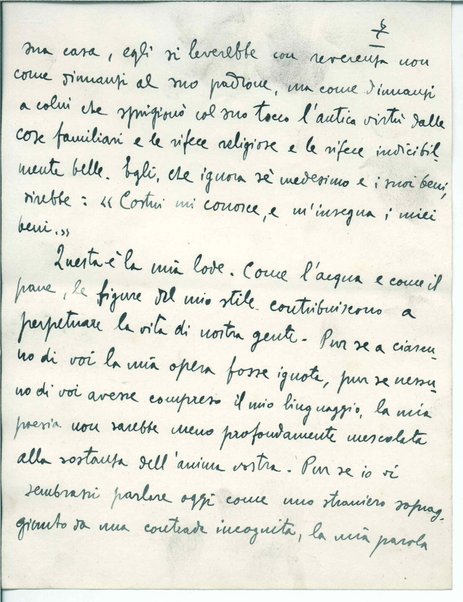 7
sua casa, egli si leverebbe con reverenza non
come dinnanzi al suo padrone, ma come dinnanzi
a colui che sprigionò col suo tocco l'antica virtù dalle
cose familiari e le rifece religiose e le rifece indicibil-
mente belle. Egli, che ignora sè medesimo e i suoi beni,
direbbe: « Costui mi conosce, e m'insegna i miei
beni.»
Questa è la mia lode. Come l'acqua e come il
pane, le figure del mio stile contribuiscono a
perpetuare la vita di nostra gente. Pur se a ciascu-
no di voi la mia opera fosse ignota, pur se nessu-
no di voi avesse compreso il mio linguaggio, la mia
poesia non sarebbe meno profondamente mescolata
alla sostanza dell'anima vostra. Pur se io vi
sembrassi parlare oggi come uno straniero soprag-
giunto da una contrada incognita, la mia parola